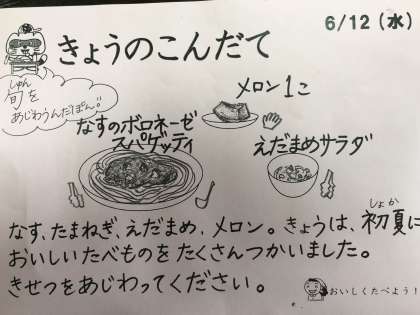 6/12(水)
きょうのこんだて
しゅん
旬を
あじわうんだぽん!!
メロン1こ
なすのボロネーゼ
スパゲッティ
えだまめサラダ
なす、たまねぎ、えだまめ、メロン。きょうは、初夏に
しょか
おいしいたべものをたくさんつかいました。
きせつをあじわってください。
おいしくたべよう!